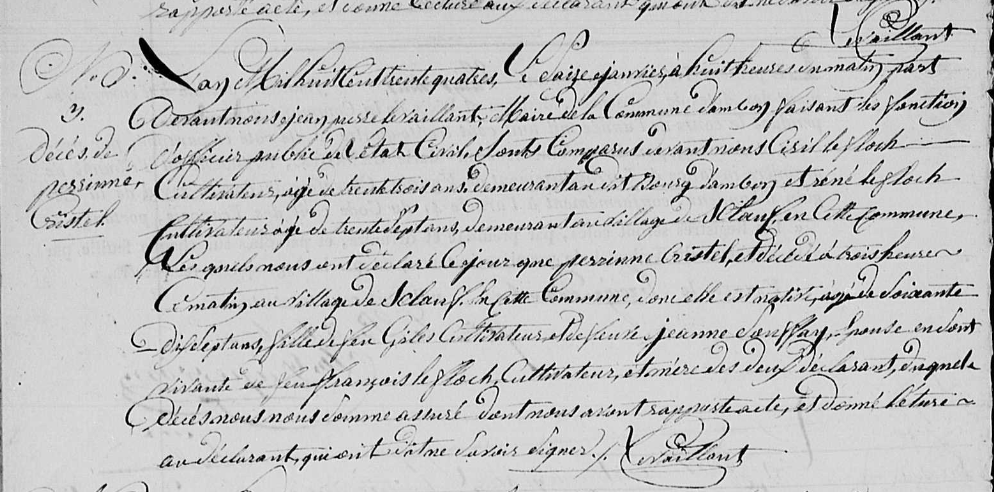 rapporté acte, et donné lecture aux déclarant qui ont
Levaillant
N.o
3.
décés de
perrinne
Cristel
Lan Mil huit Cent trente quatre, Le Saize janvier, à huit heures du matin, part
Devant nous jean pierre levaillant, Maire de la Commune d'ambon faisant les fonction
D'officier public de l'état Civil, Sont Comparus devant nous Ciril le floch
Cultivateur, âgé de trente trois ans, demeurant au dit Bourg d'ambon et réné le floch
Cultivateur âgé de trente sept ans, demeurant au village de en Cette Commune,
Les quels nous ont déclaré Ce jour que perrinne Cristel, est décédé à trois heure
Ce matin, au village de En Cette Commune, donc elle est native, agé de Soixante
Dix Sept ans, fille de feu Giles Cultivateur, et de feue jeanne epouse en Sont
vivante de feu françois le floch, Cultivateur, et mère des deux Déclarant, duquel
Décés nous nous Somme assuré dont nous avont rapporté acte, et donné lecture
au déclarant, qui ont dit ne Savoir Signer ./.
Levaillant